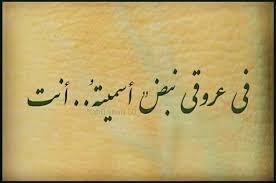 في عروقي نبضٌ أسميتهُ .. أنت